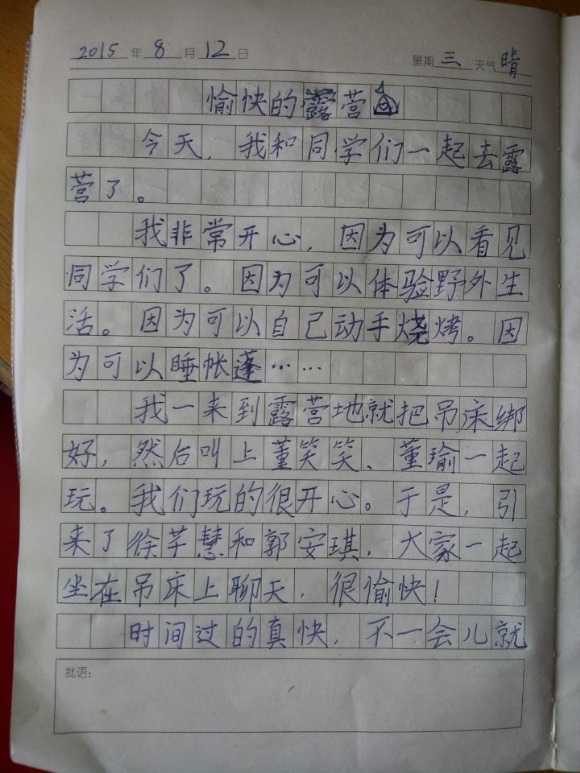 2015年8月12日 星期三 天气晴
愉快的露营
今天，我和同学们一起去露
营了。
我非常开心，因为可以看见
同学们了。因为可以体验野外生
活。因为可以自己动手烧烤。因
为可以睡帐蓬……
我一来到露营地就把吊床绑
好，然后叫上董笑笑、董瑜一起
玩。我们玩的很开心。于是，引
来了徐芊慧和郭安琪，大家一起
坐在吊床上聊天，很愉快！
时间过的真快，不一会儿就
批语：